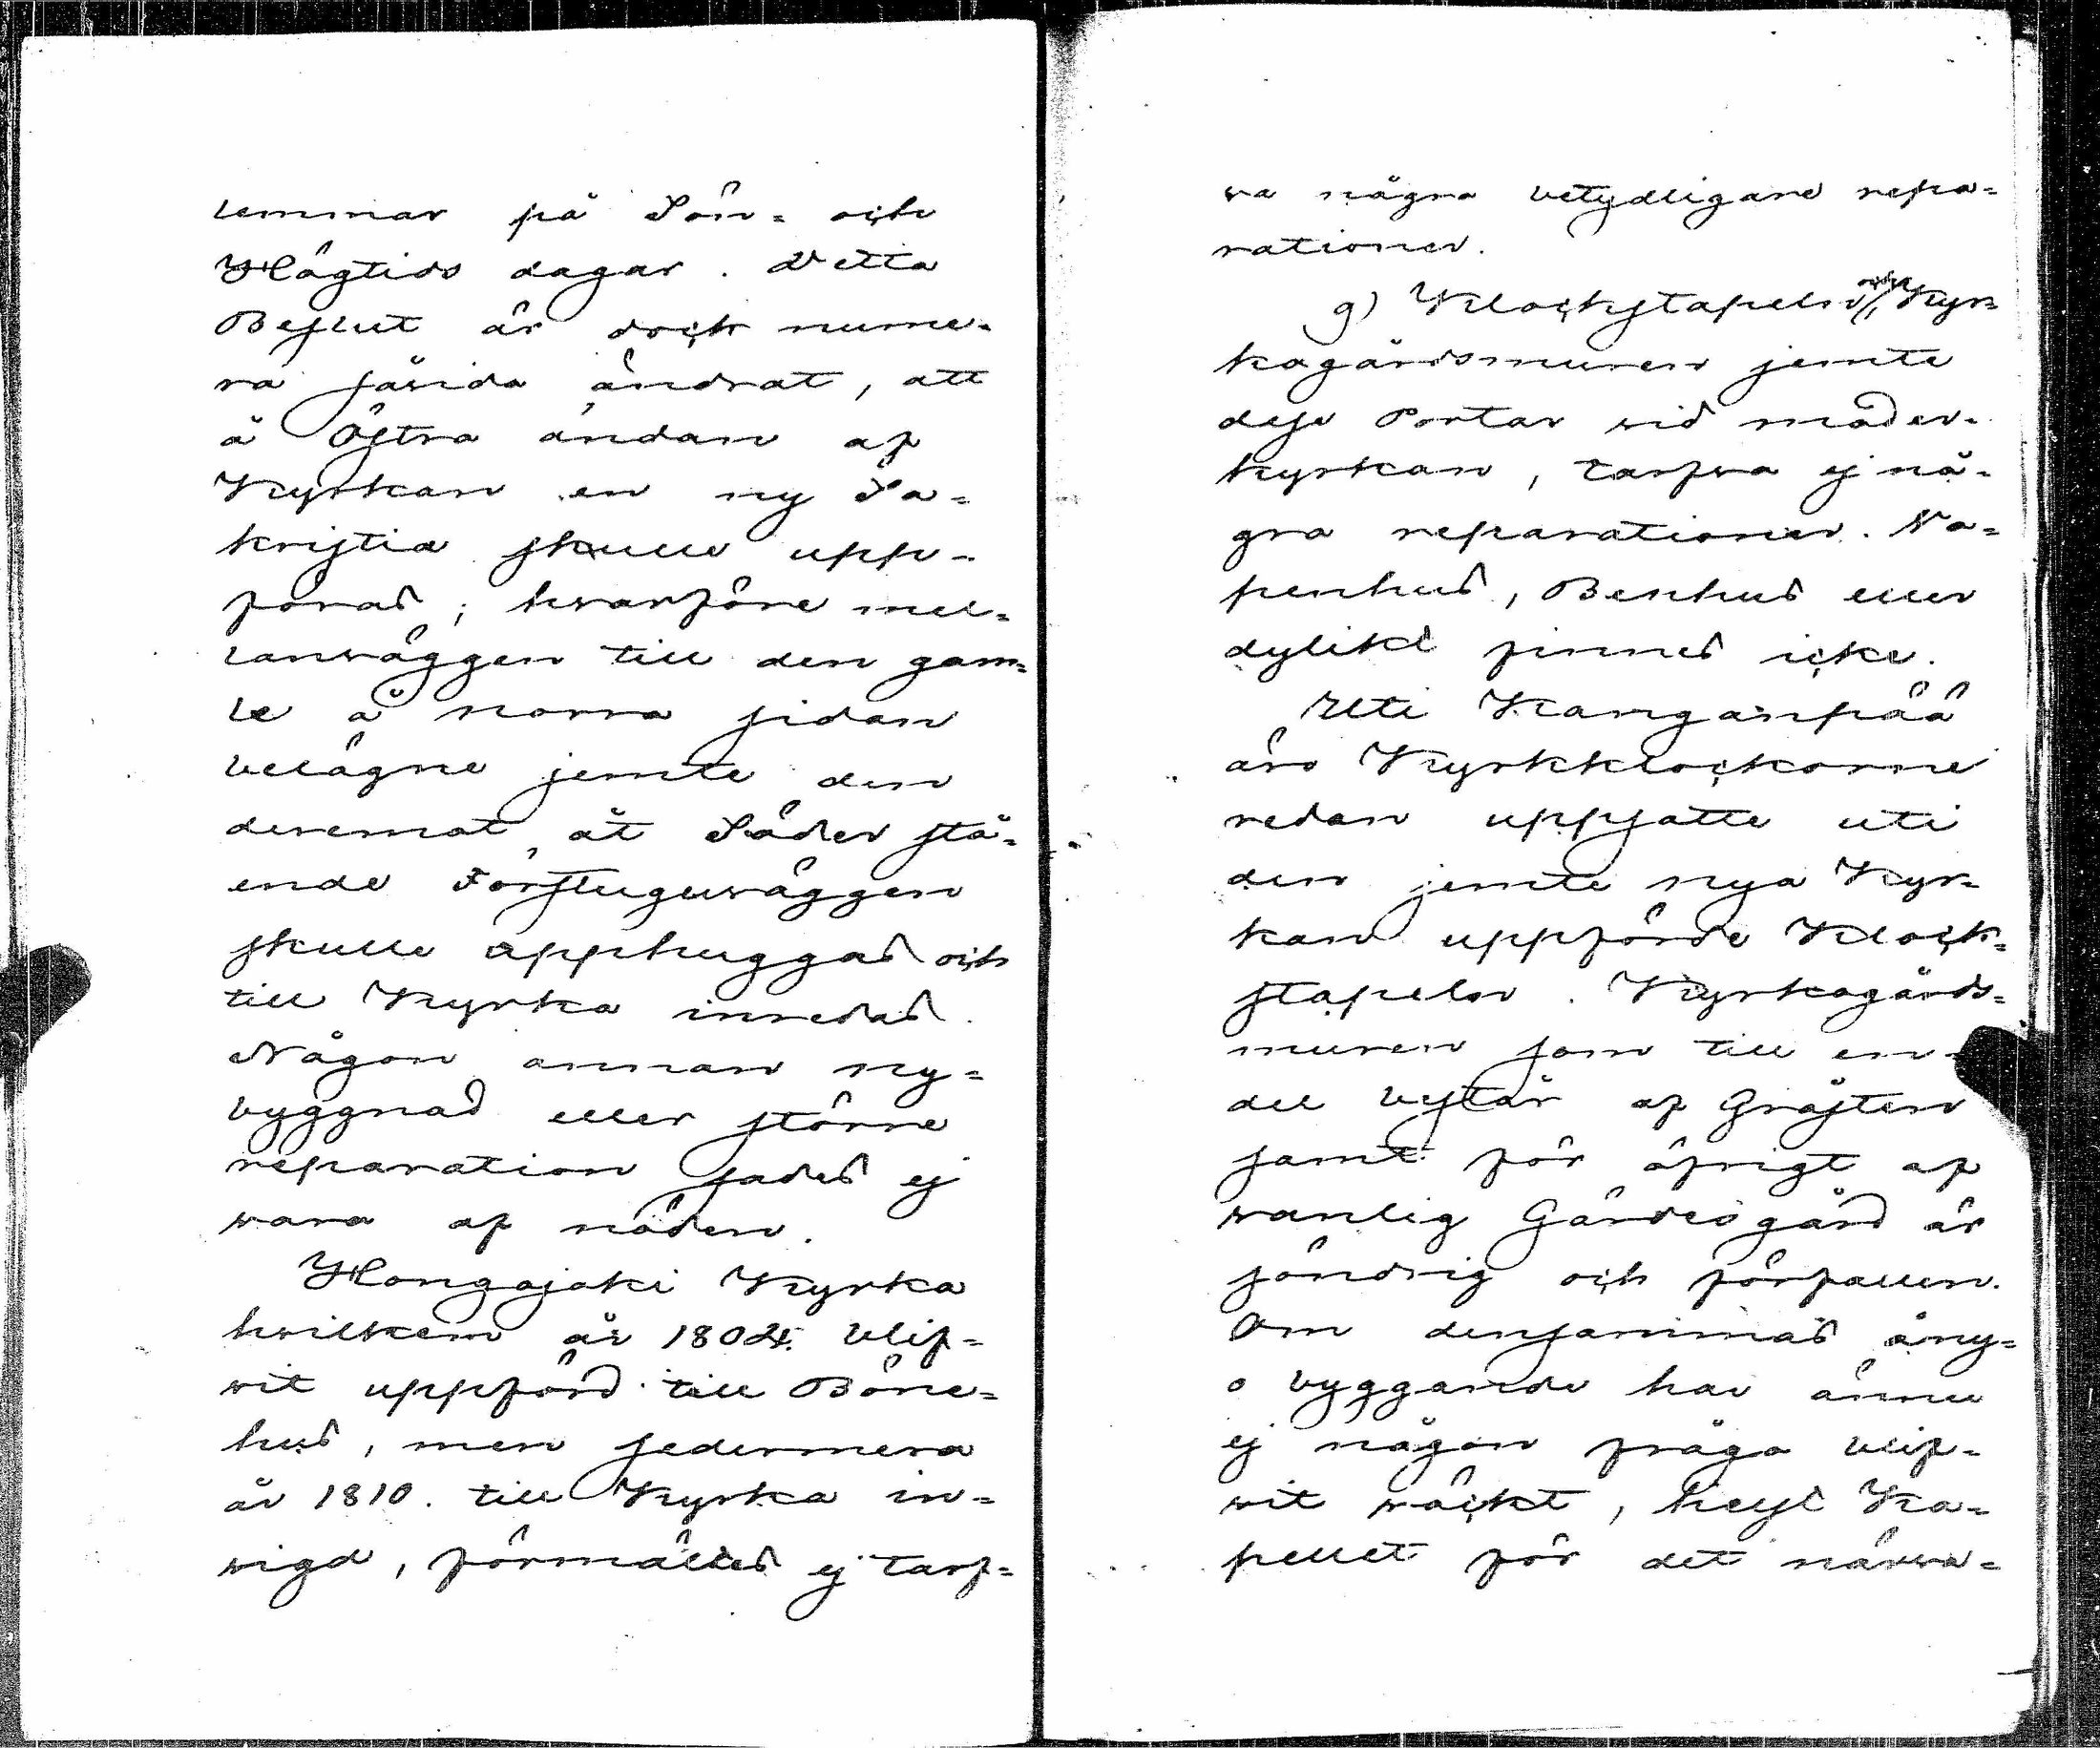 lemmar på Sön= och
Högtids dagar. Detta
Beslut är dock nume=
ra såvida ändrat, att
å Östra ändan af
Kyrkan en ny Sa=
kristia skulle upp=
föras; hvarföre mel=
lanväggen till den gam=
le å norra sidan
belägne jemte den
deremot åt Söder stå=
ende Förstuguväggen
skulle upphuggas och
till Kyrka inredas.
Någon annan ny=
byggnad eller större
reparation sades ej
wara af nöden.
Hongojoki Kyrka
hvilken år 1804. blif=
wit uppförd till Böne=
hus, men sedermera
år 1810. till Kyrka in=
wigd, förmältes ej tarf=
wa några betydligare repa=
rationer.
g) Klockstapeln och Kyr=
kogårdsmuren jemte
dess Portar wid moder=
kyrkan, tarfwa ej nå=
gra reparationer. Va=
penhus, Benhus eller
dylikt finnes icke.
Uti Kanganpää
äro Kyrkklockorne
redan uppsatte uti
den jemte nya Kyr=
kan uppförde Klock=
stapeln. Kyrkogårds=
muren som till en
del består af Gråsten
samt för öfrigt af
wanlig Gärdesgård är
söndrig och förfallen.
Om densammas åny=
o byggande har ännu
ej någon fråga blif=
wit wäckt, helst Ka=
pellet för det närwa=